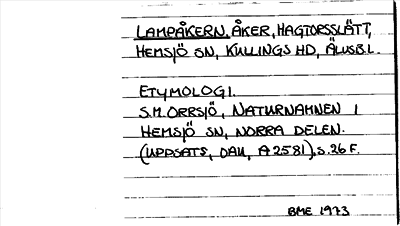 LAMPÅKERN, ÅKER, HAGTORSSLÄTT,
HEMSJÖ SN, KULLINGS HD, ÄLVSB.L.
ETYMOLOGI.
S.M. ORRSJÖ, NATURNAMNEN I
HEMSJÖ SN, NORRA DELEN.
(UPPSATS, DAU, A2581), S. 26 F.
BME 1973